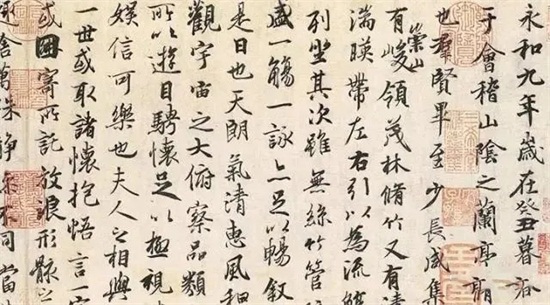 永和九年歲在癸丑暮春
于會稽山陰之蘭亭
也羣賢畢至少長咸集
有崇山峻領茂林脩竹又有清
湍暎帶左右引以為流
列坐其次雖無絲竹管
盛一觴一詠亦足以暢叙
是日也天朗氣清惠風和
觀宇宙之大俯察品類
所以遊目騁懷足以極視
娛信可樂也夫人之相與
一世或取諸懷抱悟言一
或因寄所託放浪形骸之
舍萬殊靜躁不同當